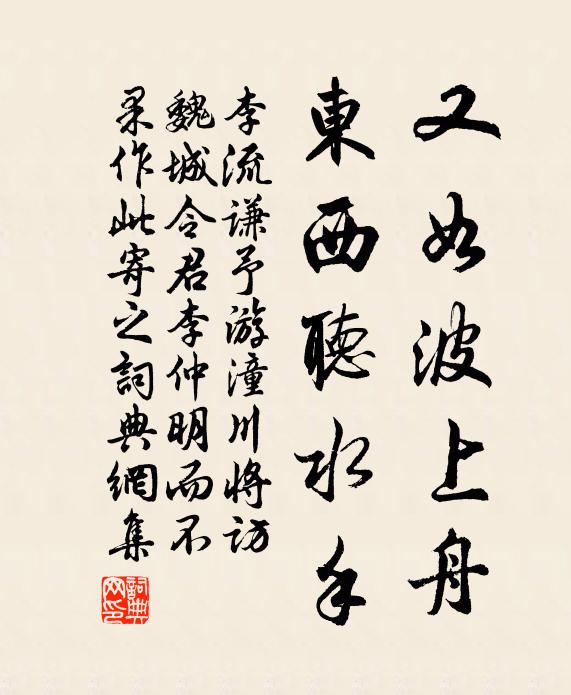 又如波上舟
東西聽水手
李流謙予游潼川將訪
魏城令君李仲明而不
果作此寄之詞典網集
詞典
网印